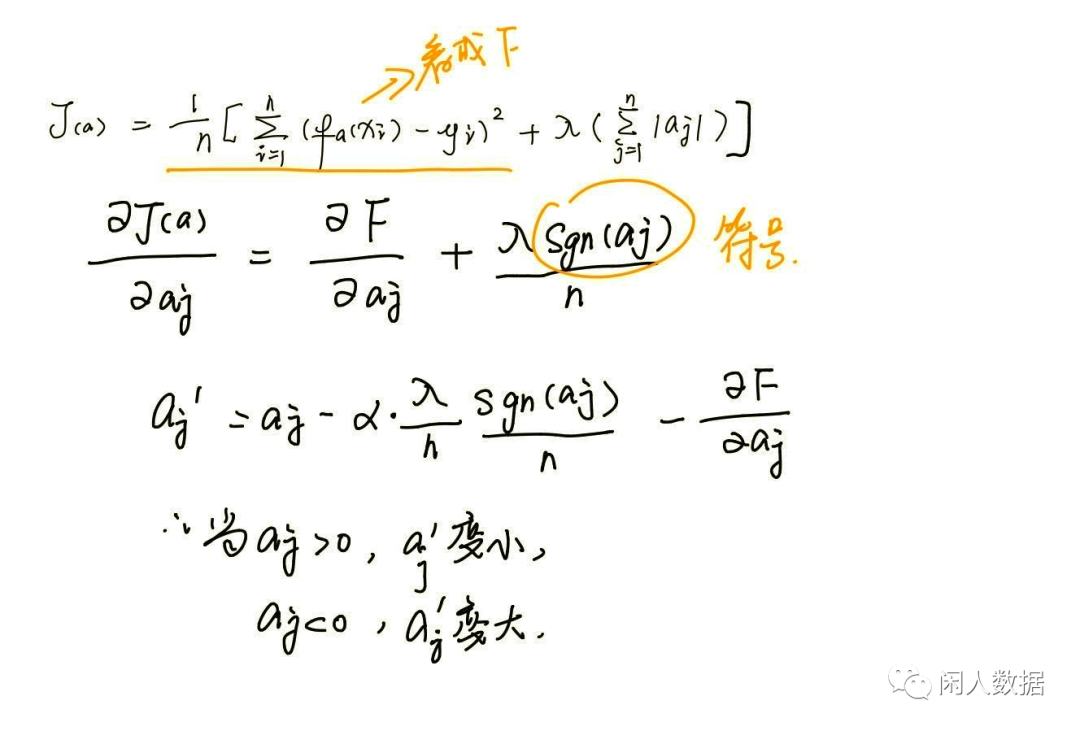 看成 F
J(a) = 1/n [ ∑_{i=1}^{n} (f_a(x_i) - y_i)² + λ ( ∑_{j=1}^{n} |a_j| ) ]
∂J(a)/∂a_j = ∂F/∂a_j + λ Sgn(a_j)/n 符号.
a_j' = a_j - α · λ/n Sgn(a_j)/n - ∂F/∂a_j
∴ 当 a_j > 0 , a_j' 变小,
a_j < 0 , a_j' 变大.
闲人数据